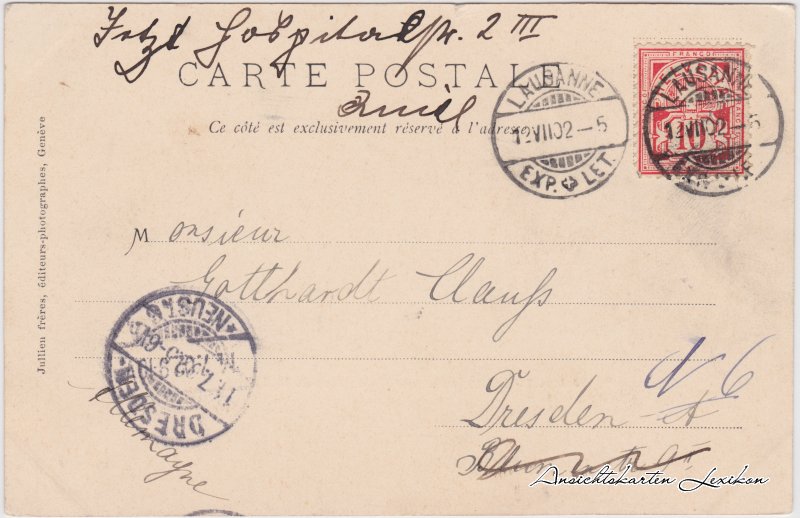 Jetzt Hospitalstr. 2 III
CARTE POSTALE
Ce côté est exclusivement réservé à l'adresse
LAUSANNE
12 VII 02-5
EXP. LET.
FRANCO
LAUSANNE
12 VII 02-5
10
Monsieur
Gotthardt Clauß
Dresden-A
N 6
Allemagne
DRESDEN-NEUST.
Jullien frères, éditeurs-photographes, Genève
Ansichtskarten Lexikon